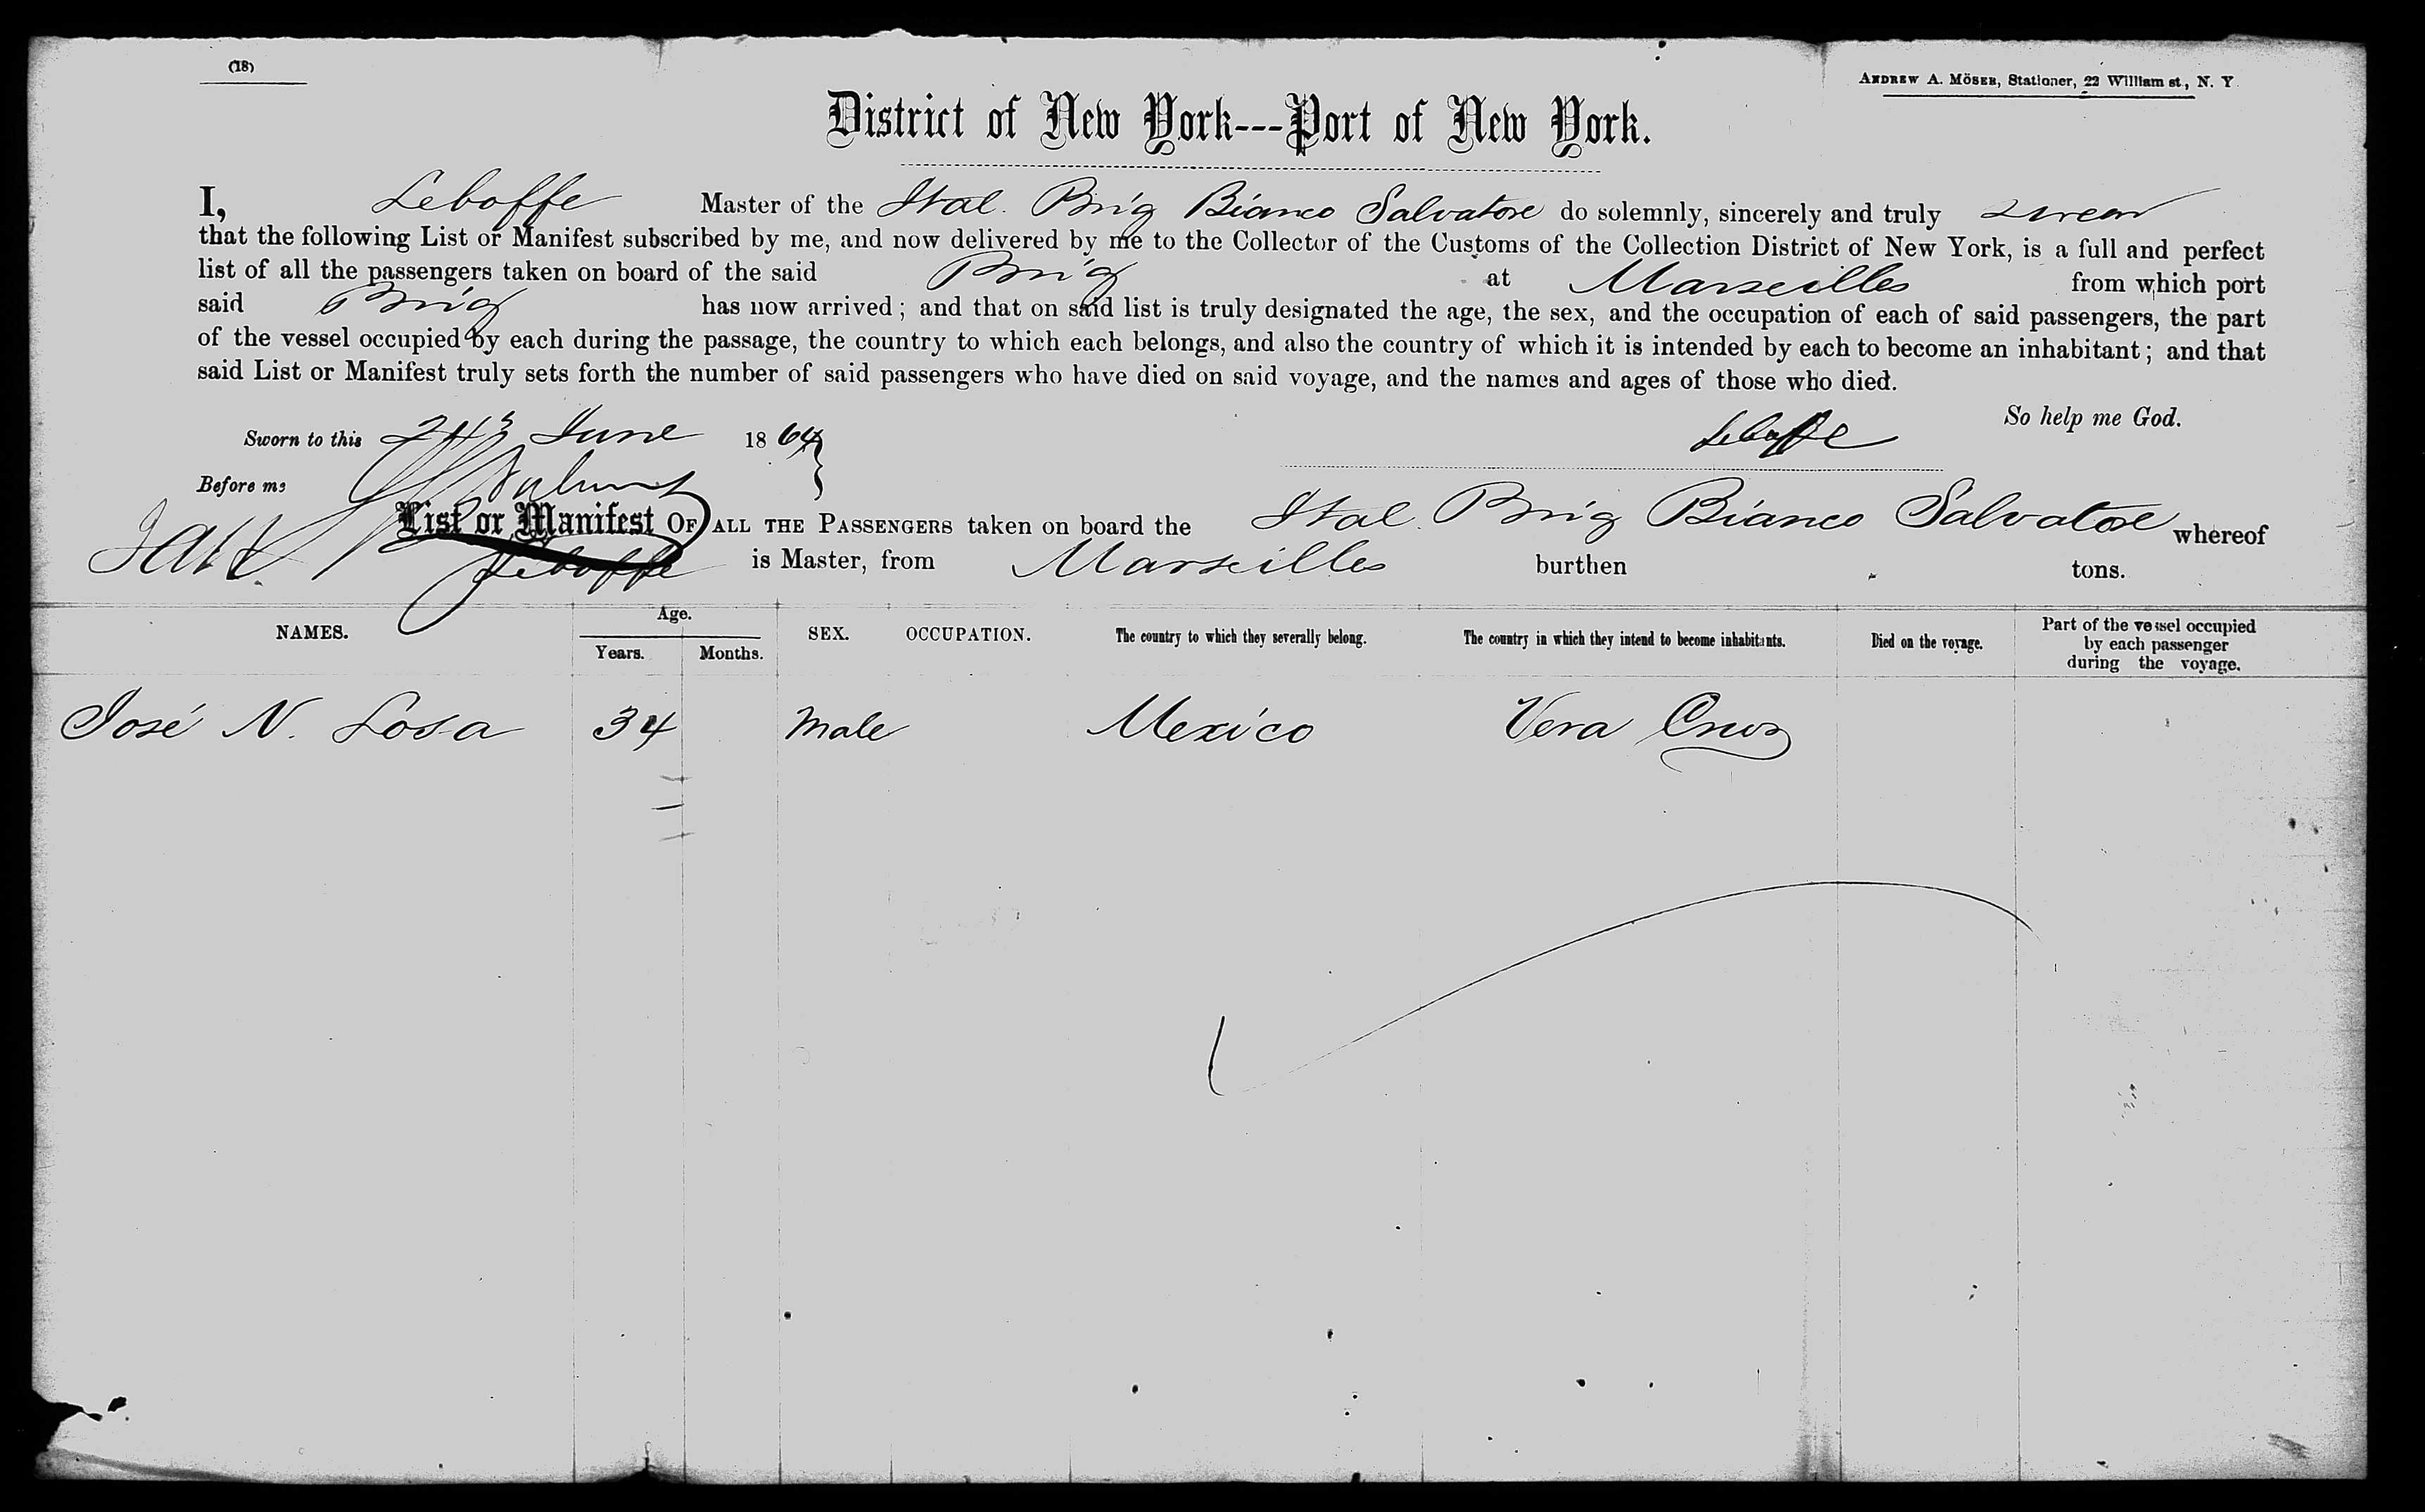 (18)
ANDREW A. MÖSER, Stationer, 22 William st., N. Y.
District of New York---Port of New York.
I, Leboffe Master of the Ital. Brig Bianco Salvatore do solemnly, sincerely and truly swear
that the following List or Manifest subscribed by me, and now delivered by me to the Collector of the Customs of the Collection District of New York, is a full and perfect
list of all the passengers taken on board of the said Brig at Marseilles from which port
said Brig has now arrived; and that on said list is truly designated the age, the sex, and the occupation of each of said passengers, the part
of the vessel occupied by each during the passage, the country to which each belongs, and also the country of which it is intended by each to become an inhabitant; and that
said List or Manifest truly sets forth the number of said passengers who have died on said voyage, and the names and ages of those who died.
So help me God.
Sworn to this 24 June 1864
Leboffe
Before me
List or Manifest OF ALL THE PASSENGERS taken on board the Ital. Brig Bianco Salvatore whereof
Leboffe is Master, from Marseilles burthen tons.
NAMES. Age. Years. Months. SEX. OCCUPATION. The country to which they severally belong. The country in which they intend to become inhabitants. Died on the voyage. Part of the vessel occupied by each passenger during the voyage.
José N. Losa 34 Male Mexico Vera Cruz